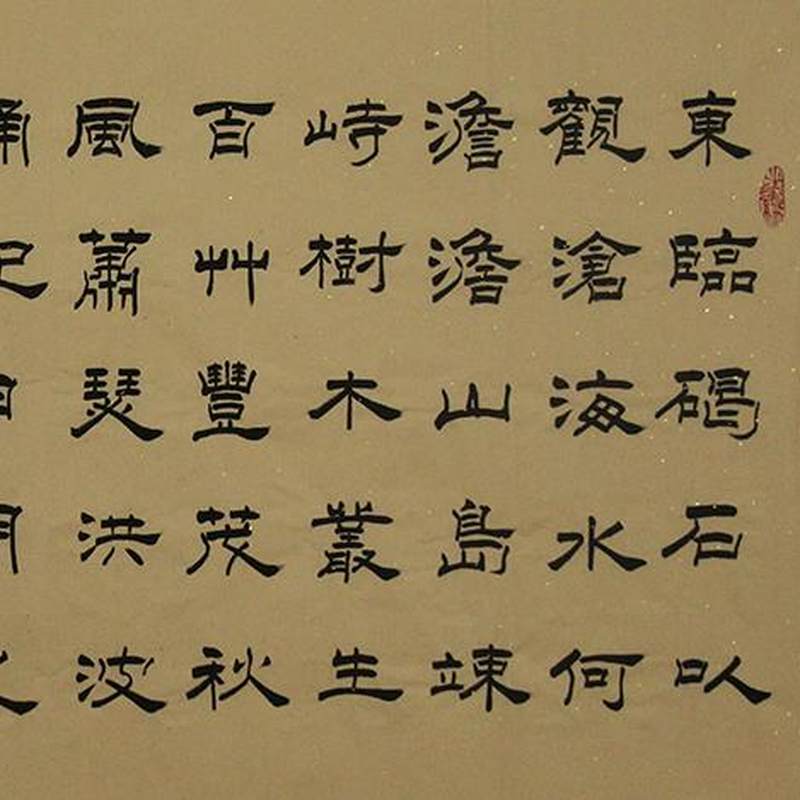 東臨碣石㕥
觀滄海水何
澹澹山島竦
峙樹木叢生
百艸豐茂秋
風蕭瑟洪波